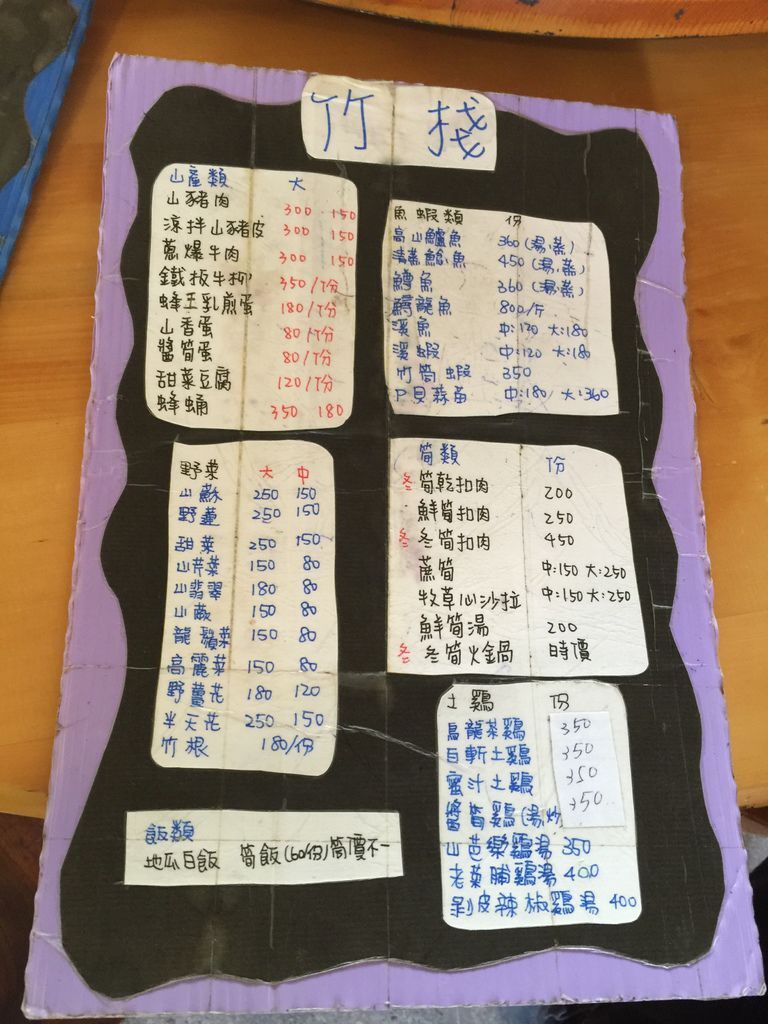 竹 棧
山產類 大
山豬肉 300 150
涼拌山豬皮 300 150
蔥爆牛肉 300 150
鐵板牛柳 350/1份
蜂王乳煎蛋 180/1份
山香蛋 80/1份
醬筍蛋 80/1份
甜菜豆腐 120/1份
蜂蛹 350 180
魚蝦類 份
高山鱸魚 360(湯.蒸)
清蒸鯰魚 450(湯.蒸)
鱒魚 360(湯.蒸)
鱘龍魚 800/斤
溪魚 中:120 大:180
溪蝦 中:120 大:180
竹筒蝦 350
中:180 大:360
野菜 大 中
山蘇 250 150
野蓮 250 150
甜菜 250 150
山芹菜 150 80
山翡翠 180 80
山蕨 150 80
龍鬚菜 150 80
高麗菜 150 80
野薑花 180 120
半天花 250 150
竹根 180/份
筍類 1份
冬 筍乾扣肉 200
鮮筍扣肉 250
冬 冬筍扣肉 450
蔗筍 中:150 大:250
牧草心沙拉 中:150 大:250
鮮筍湯 200
冬 冬筍火鍋 時價
土鷄 1份
烏龍茶鷄 350
白斬土鷄 350
蜜汁土鷄 350
醬筍鷄(湯.炒 350
山芭樂鷄湯 350
老菜脯鷄湯 400
剝皮辣椒鷄湯 400
飯類
地瓜白飯 筒飯(60份)筒價不一